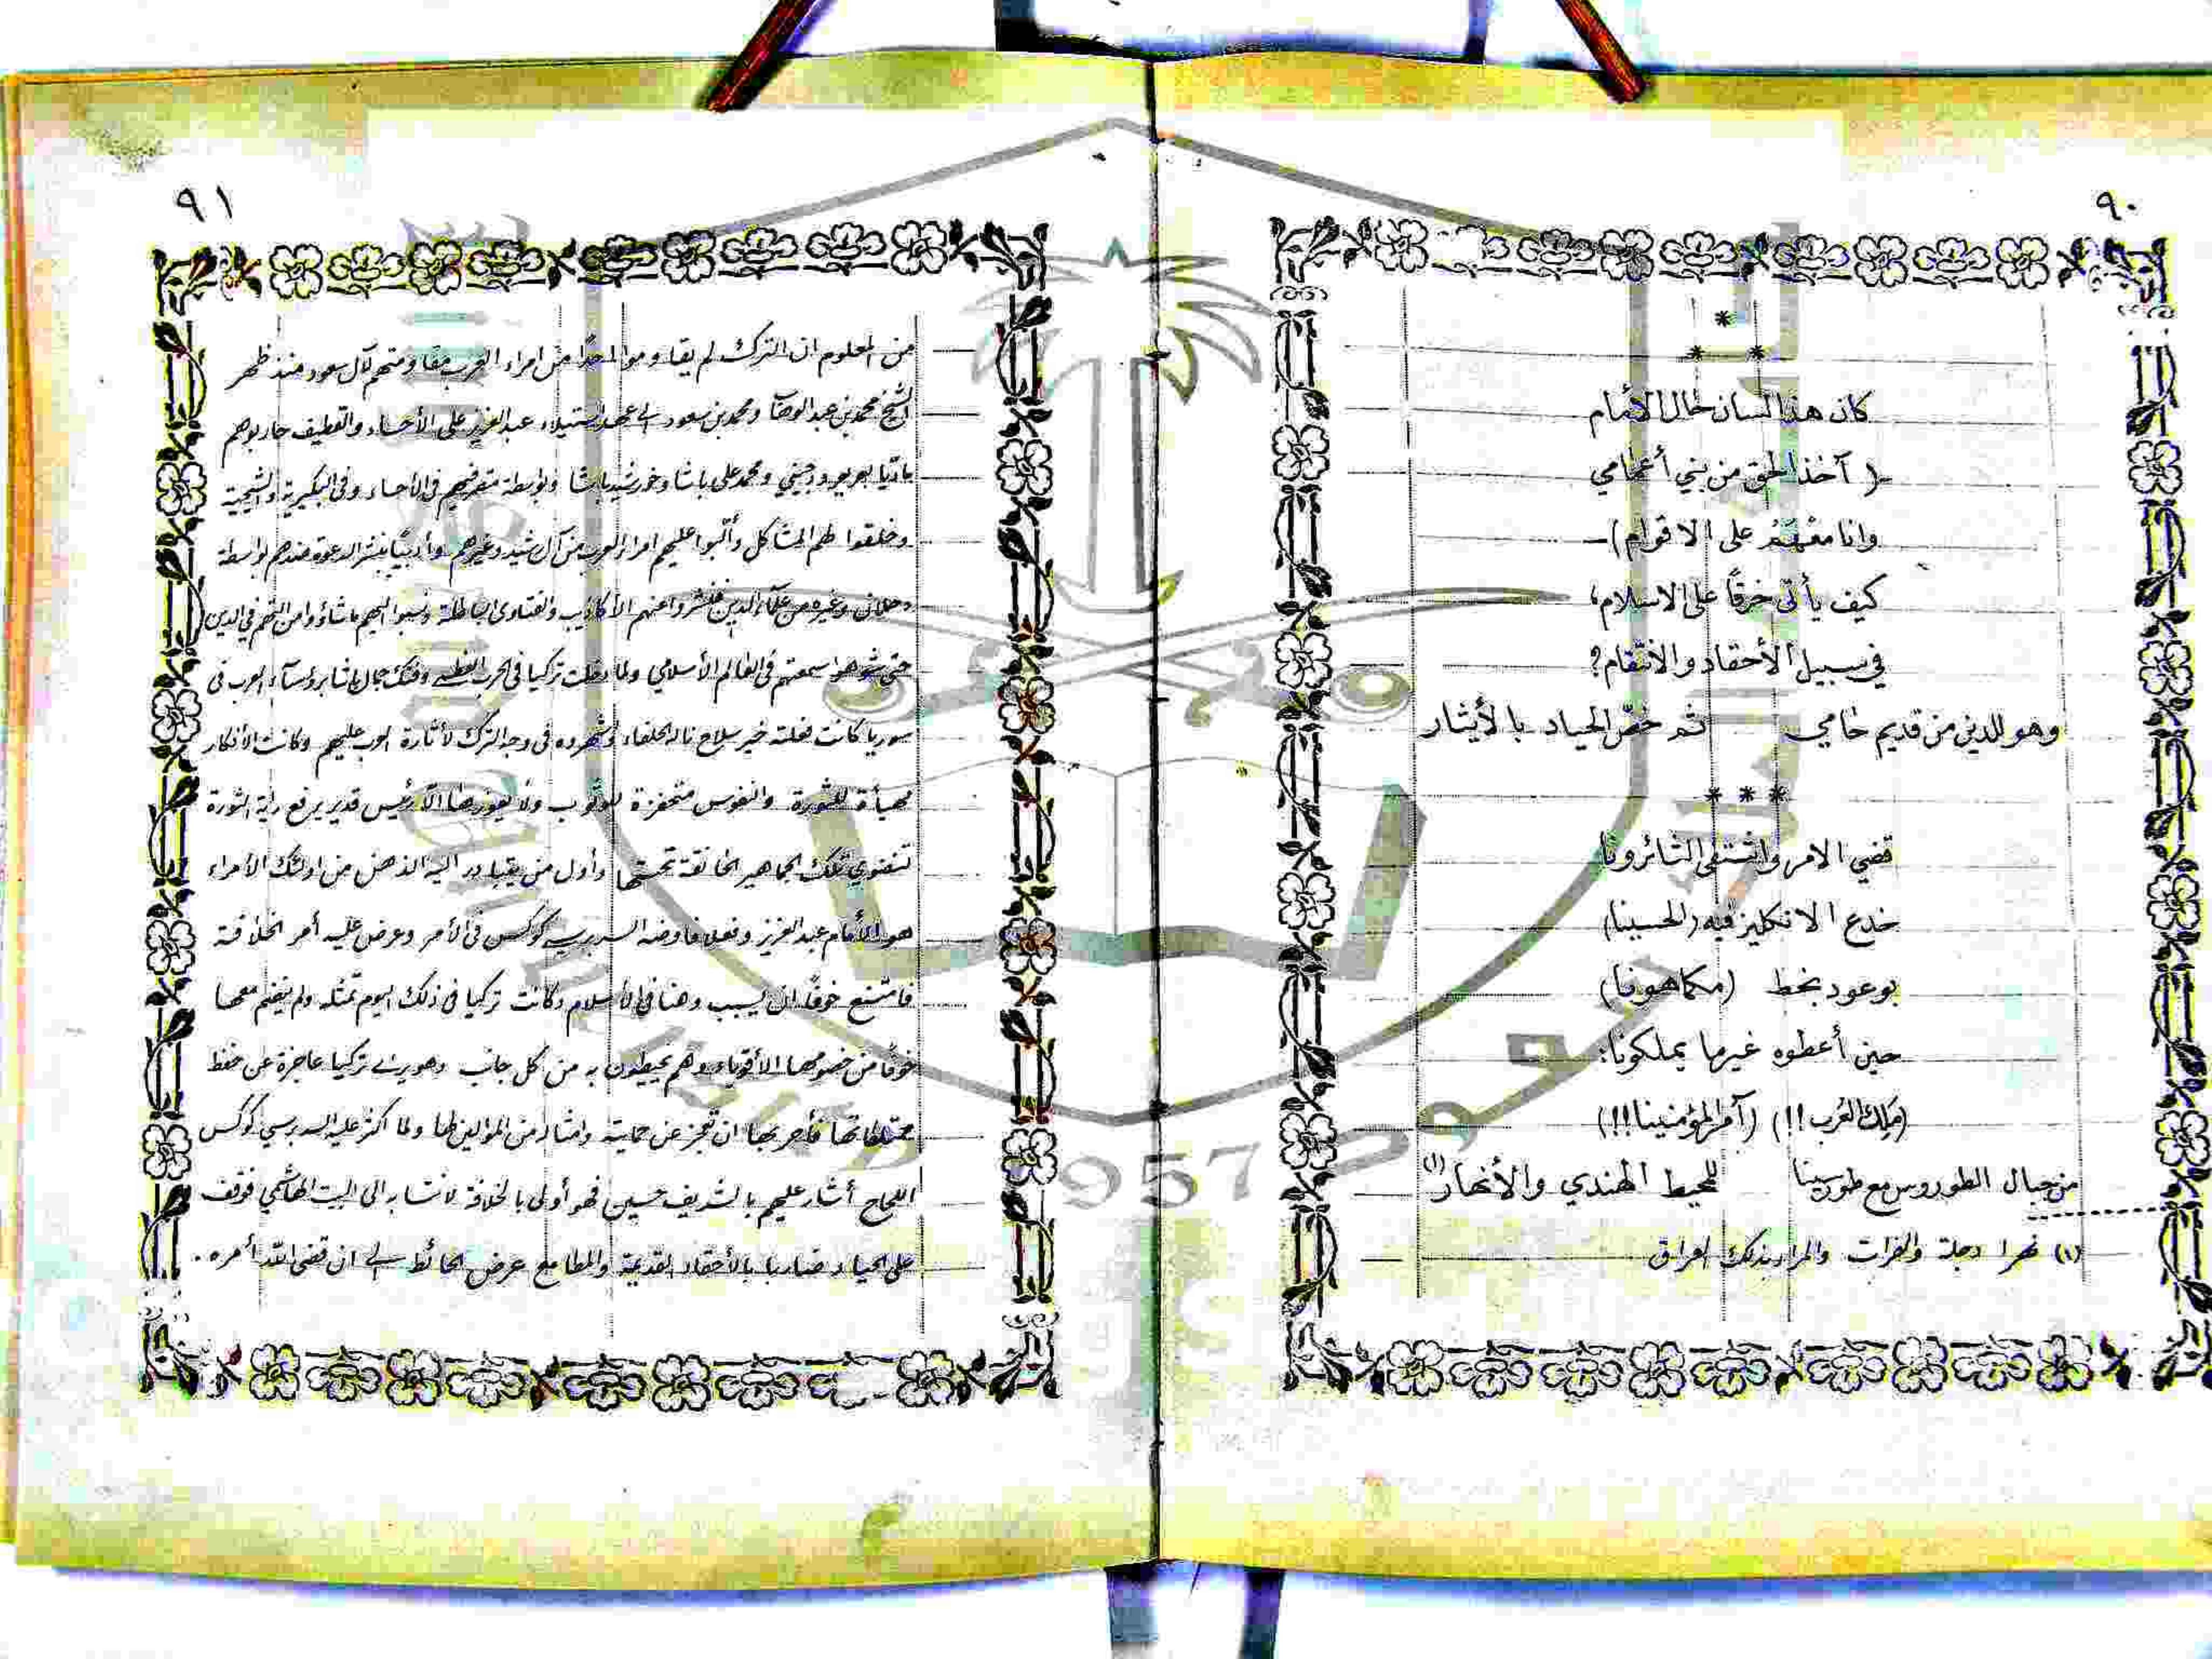 ٩٠
*
* *
كان هذا لسان حال الأمام
( آخذ الحق من بني أعمامي
وانا معهم على الاقوام )
كيف يأتي خرقًا على الاسلام،
في سبيل الأحقاد والانتقام؟
وهو للدين من قديم حامي ثم خص الحياد بالأيثار
* * *
قضي الامر واشتفى الثائرونا
خدع الانكليز فيه (الحسينا)
بوعود بخط (مكماهونا)
حين أعطوه غير ما يملكونا:
(ملك العرب!!) (آمر المؤمنينا!!)
من جبال الطوروس مع طورسينا للمحيط الهندي والأنهار (١)
(١) نهرا دجلة والفرات والمراد بذلك العراق
٩١
من المعلوم ان الترك لم يقاوموا احدًا من امراء العرب مقاومتهم لآل سعود منذ ظهر
الشيخ محمد بن عبد الوهاب ومحمد بن سعود الى عهد استيلاء عبد العزيز على الأحساء والقطيف حاربوهم
ماديًا ومحمد علي باشا وخورشيد باشا وبواسطة في الأحساء وفي البكيرية والشيحية
وخلقوا لهم المشاكل وألّبوا عليهم امراء العرب من آل رشيد وغيرهم وأدبيًا بنشر الدعوة ضدهم بواسطة
دحلان وغيره من علماء الدين فنشروا عنهم الأكاذيب والفتاوى الباطلة ونسبوا اليهم ماشاؤوا من التهم في الدين
حتى شوهوا سمعتهم في العالم الأسلامي ولما دخلت تركيا في الحرب العظمى وفتك جمال باشا برؤساء العرب في
سوريا كانت فعلته خير سلاح ناله الحلفاء وشهروه في وجه الترك لأثارة العرب عليهم وكانت الأفكار
مهيأة للثورة والنفوس متحفزة للوثوب ولا يعوزها الا رئيس قدير يرفع راية الثورة
لتنضوي تلك الجماهير الخانقة تحتها وأول من يتبادر اليه الذهن من اولئك الأمراء
هو الأمام عبد العزيز وفعلا فاوضه السر برسي كوكس في الأمر وعرض عليه أمر الخلافة
فامتنع خوفًا ان يسبب وهنا في الأسلام وكانت تركيا في ذلك اليوم تمثله ولم ينضم معها
خوفًا من خصومها الأقوياء وهم يحيطون به من كل جانب وهو يرى تركيا عاجزة عن حفظ
ممتلكاتها فأحر بها ان تعجز عن حمايته وامثاله من الموالين لها ولما اكثر عليه السر برسي كوكس
اللجاج أشار عليهم بالشريف حسين فهو أولى بالخلافة لانتسابه الى البيت الهاشمي فوقف
على الحياد ضاربا بالأحقاد القديمة والمطامع عرض الحائط الى ان قضى الله أمره.